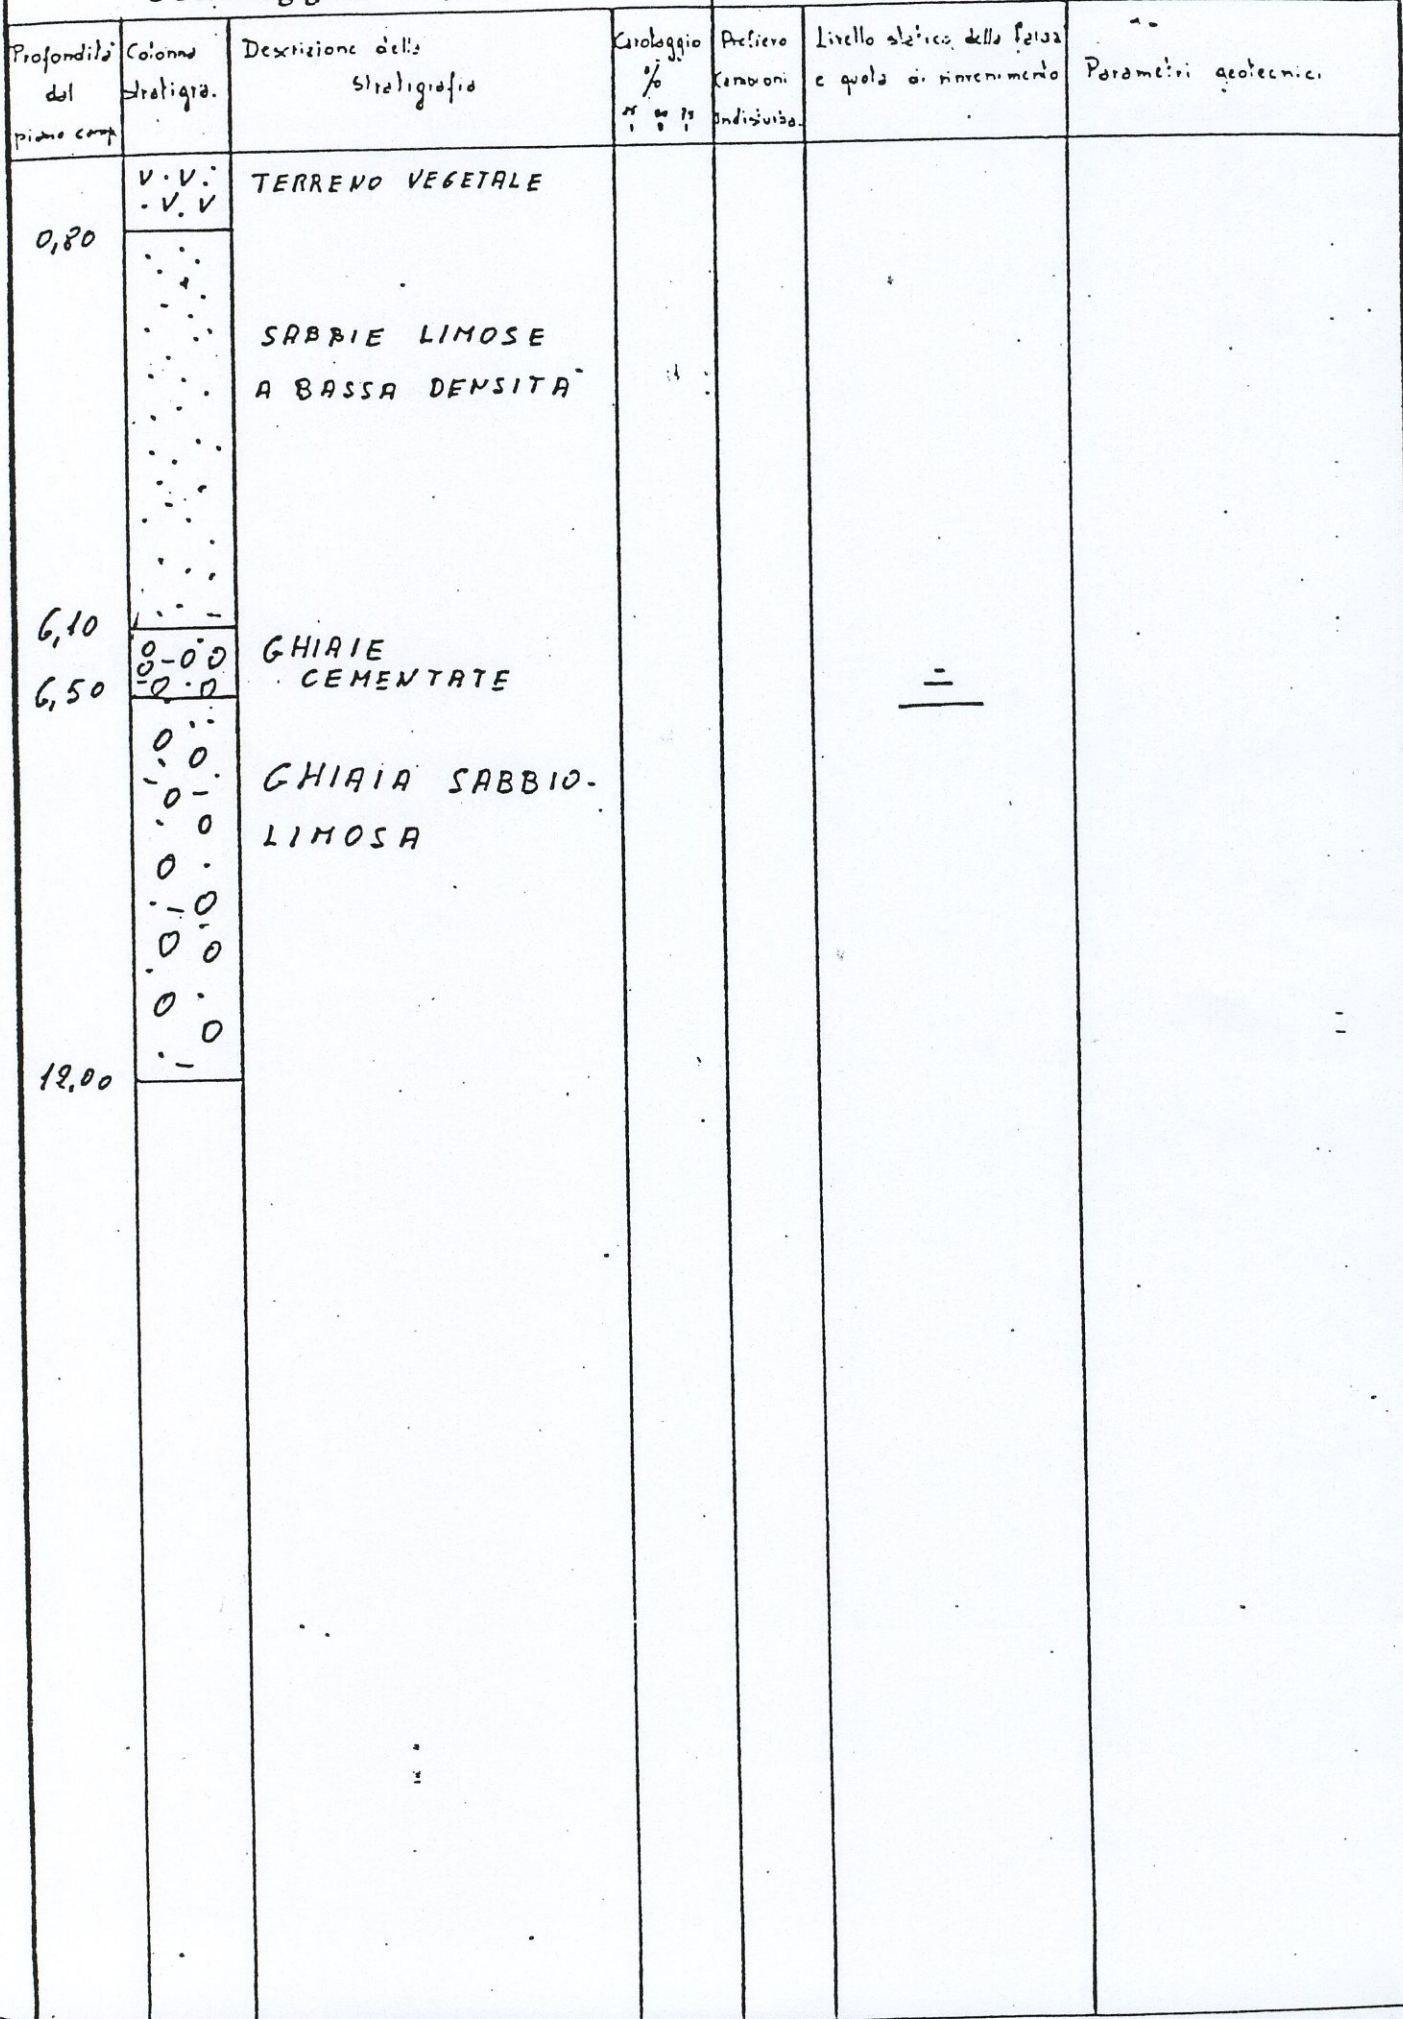 Profondità
dal
piano camp
Colonna
stratigra.
Descrizione della
stratigrafia
Carotaggio
%
Prelievo
Campioni
Indisturba.
Livello statico della falda
e quota di rinvenimento
Parametri geotecnici
TERRENO VEGETALE
0,80
SABBIE LIMOSE
A BASSA DENSITA'
6,10
GHIAIE
CEMENTATE
6,50
GHIAIA SABBIO-
LIMOSA
12,00